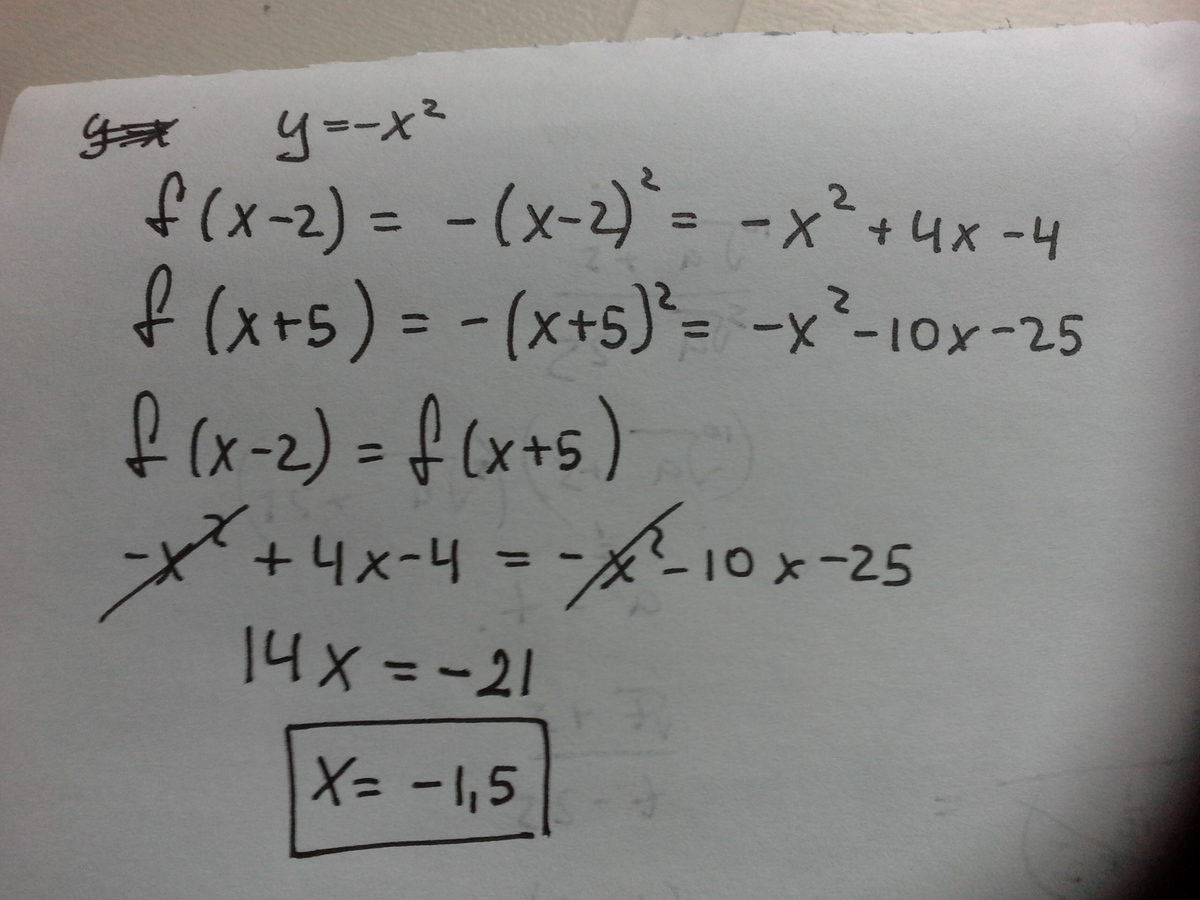 y=x y=-x²
f(x-2) = -(x-2)² = -x²+4x-4
f(x+5) = -(x+5)² = -x²-10x-25
f(x-2) = f(x+5)
-x² + 4x-4 = -x²-10x-25
14x = -21
x= -1,5